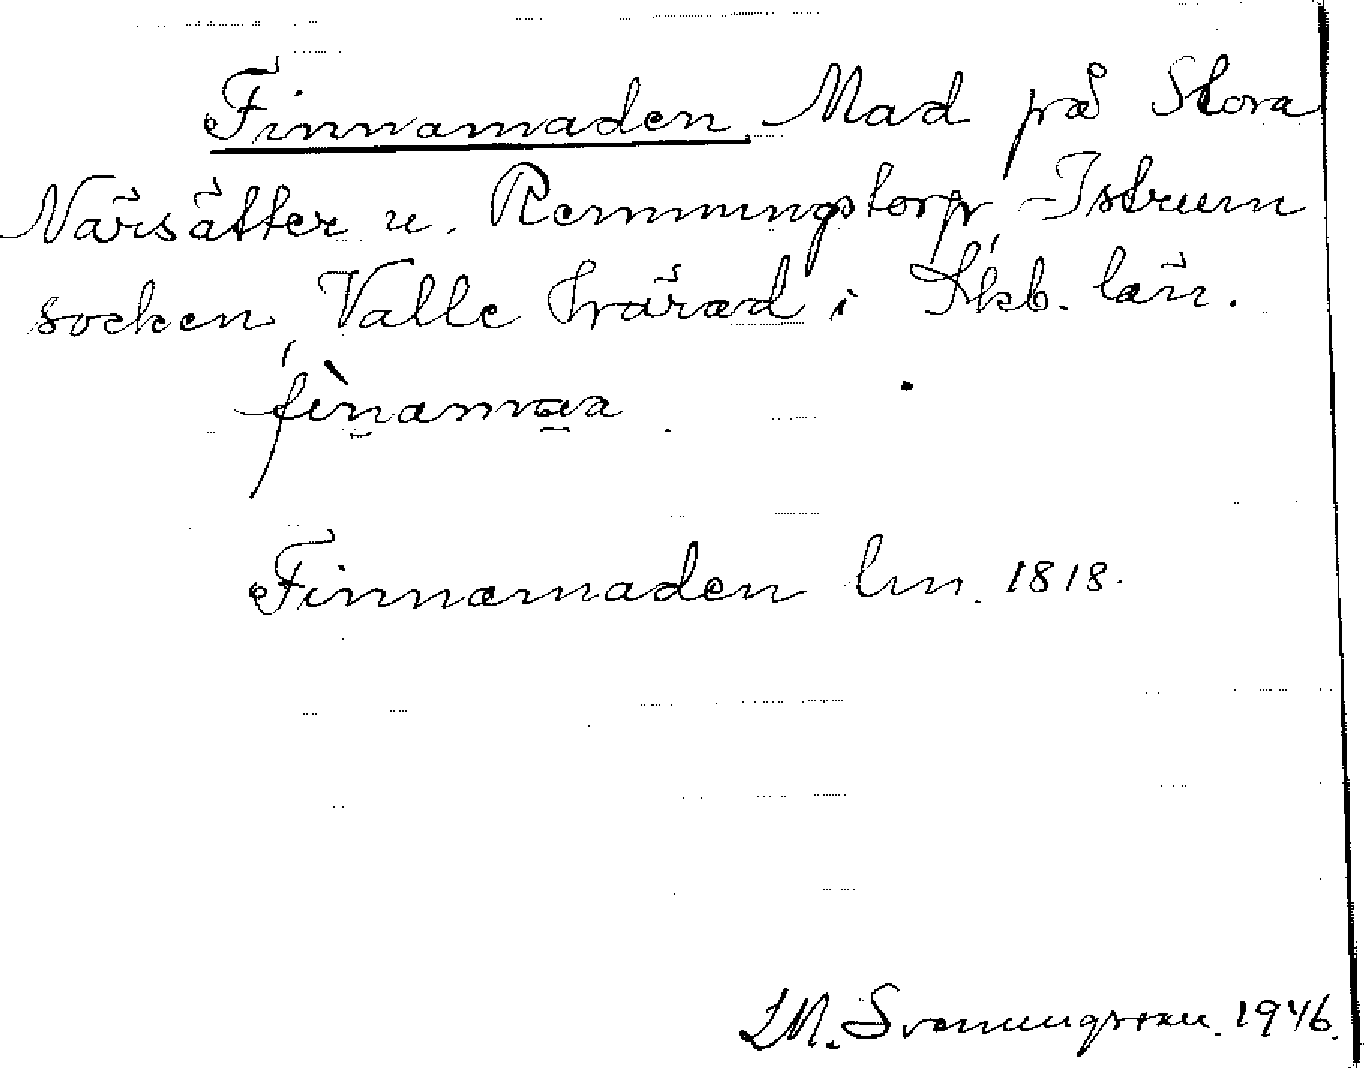 Finnamaden. Mad på Stora
Närsätter u. Remmingstorp, Istrum
socken, Valle härad i Skb. län.
fìnamaa
Finnamaden lm. 1818.
M. Svenningsson. 1946.